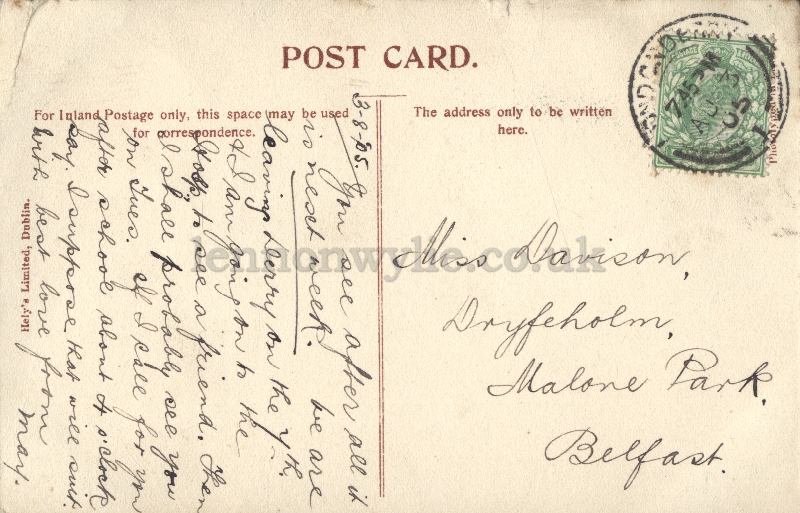 POST CARD.
For Inland Postage only, this space may be used
for correspondence.
The address only to be written
here.
LONDONDERRY
7.45 PM
AU 3
05
3-8-05.
You see after all it
is next week. We are
leaving Derry on the 7th.
& I am going on to the
to see a friend. Then
I shall probably see you
on Tues. if I call for you
after school about 4 o'clock
say. I suppose that will suit.
With best love from
May.
Miss Davison,
Dryfeholm,
Malone Park,
Belfast.
Hely's Limited, Dublin.
lennonwylie.co.uk